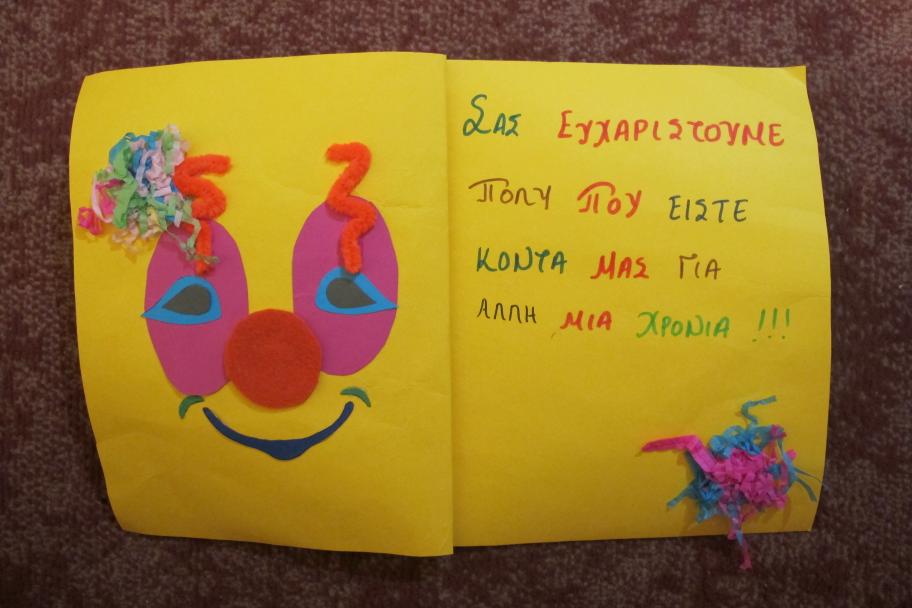 ΣΑΣ ΕΥΧΑΡΙΣΤΟΥΜΕ
ΠΟΛΥ ΠΟΥ ΕΙΣΤΕ
ΚΟΝΤΑ ΜΑΣ ΓΙΑ
ΑΛΛΗ ΜΙΑ ΧΡΟΝΙΑ !!!